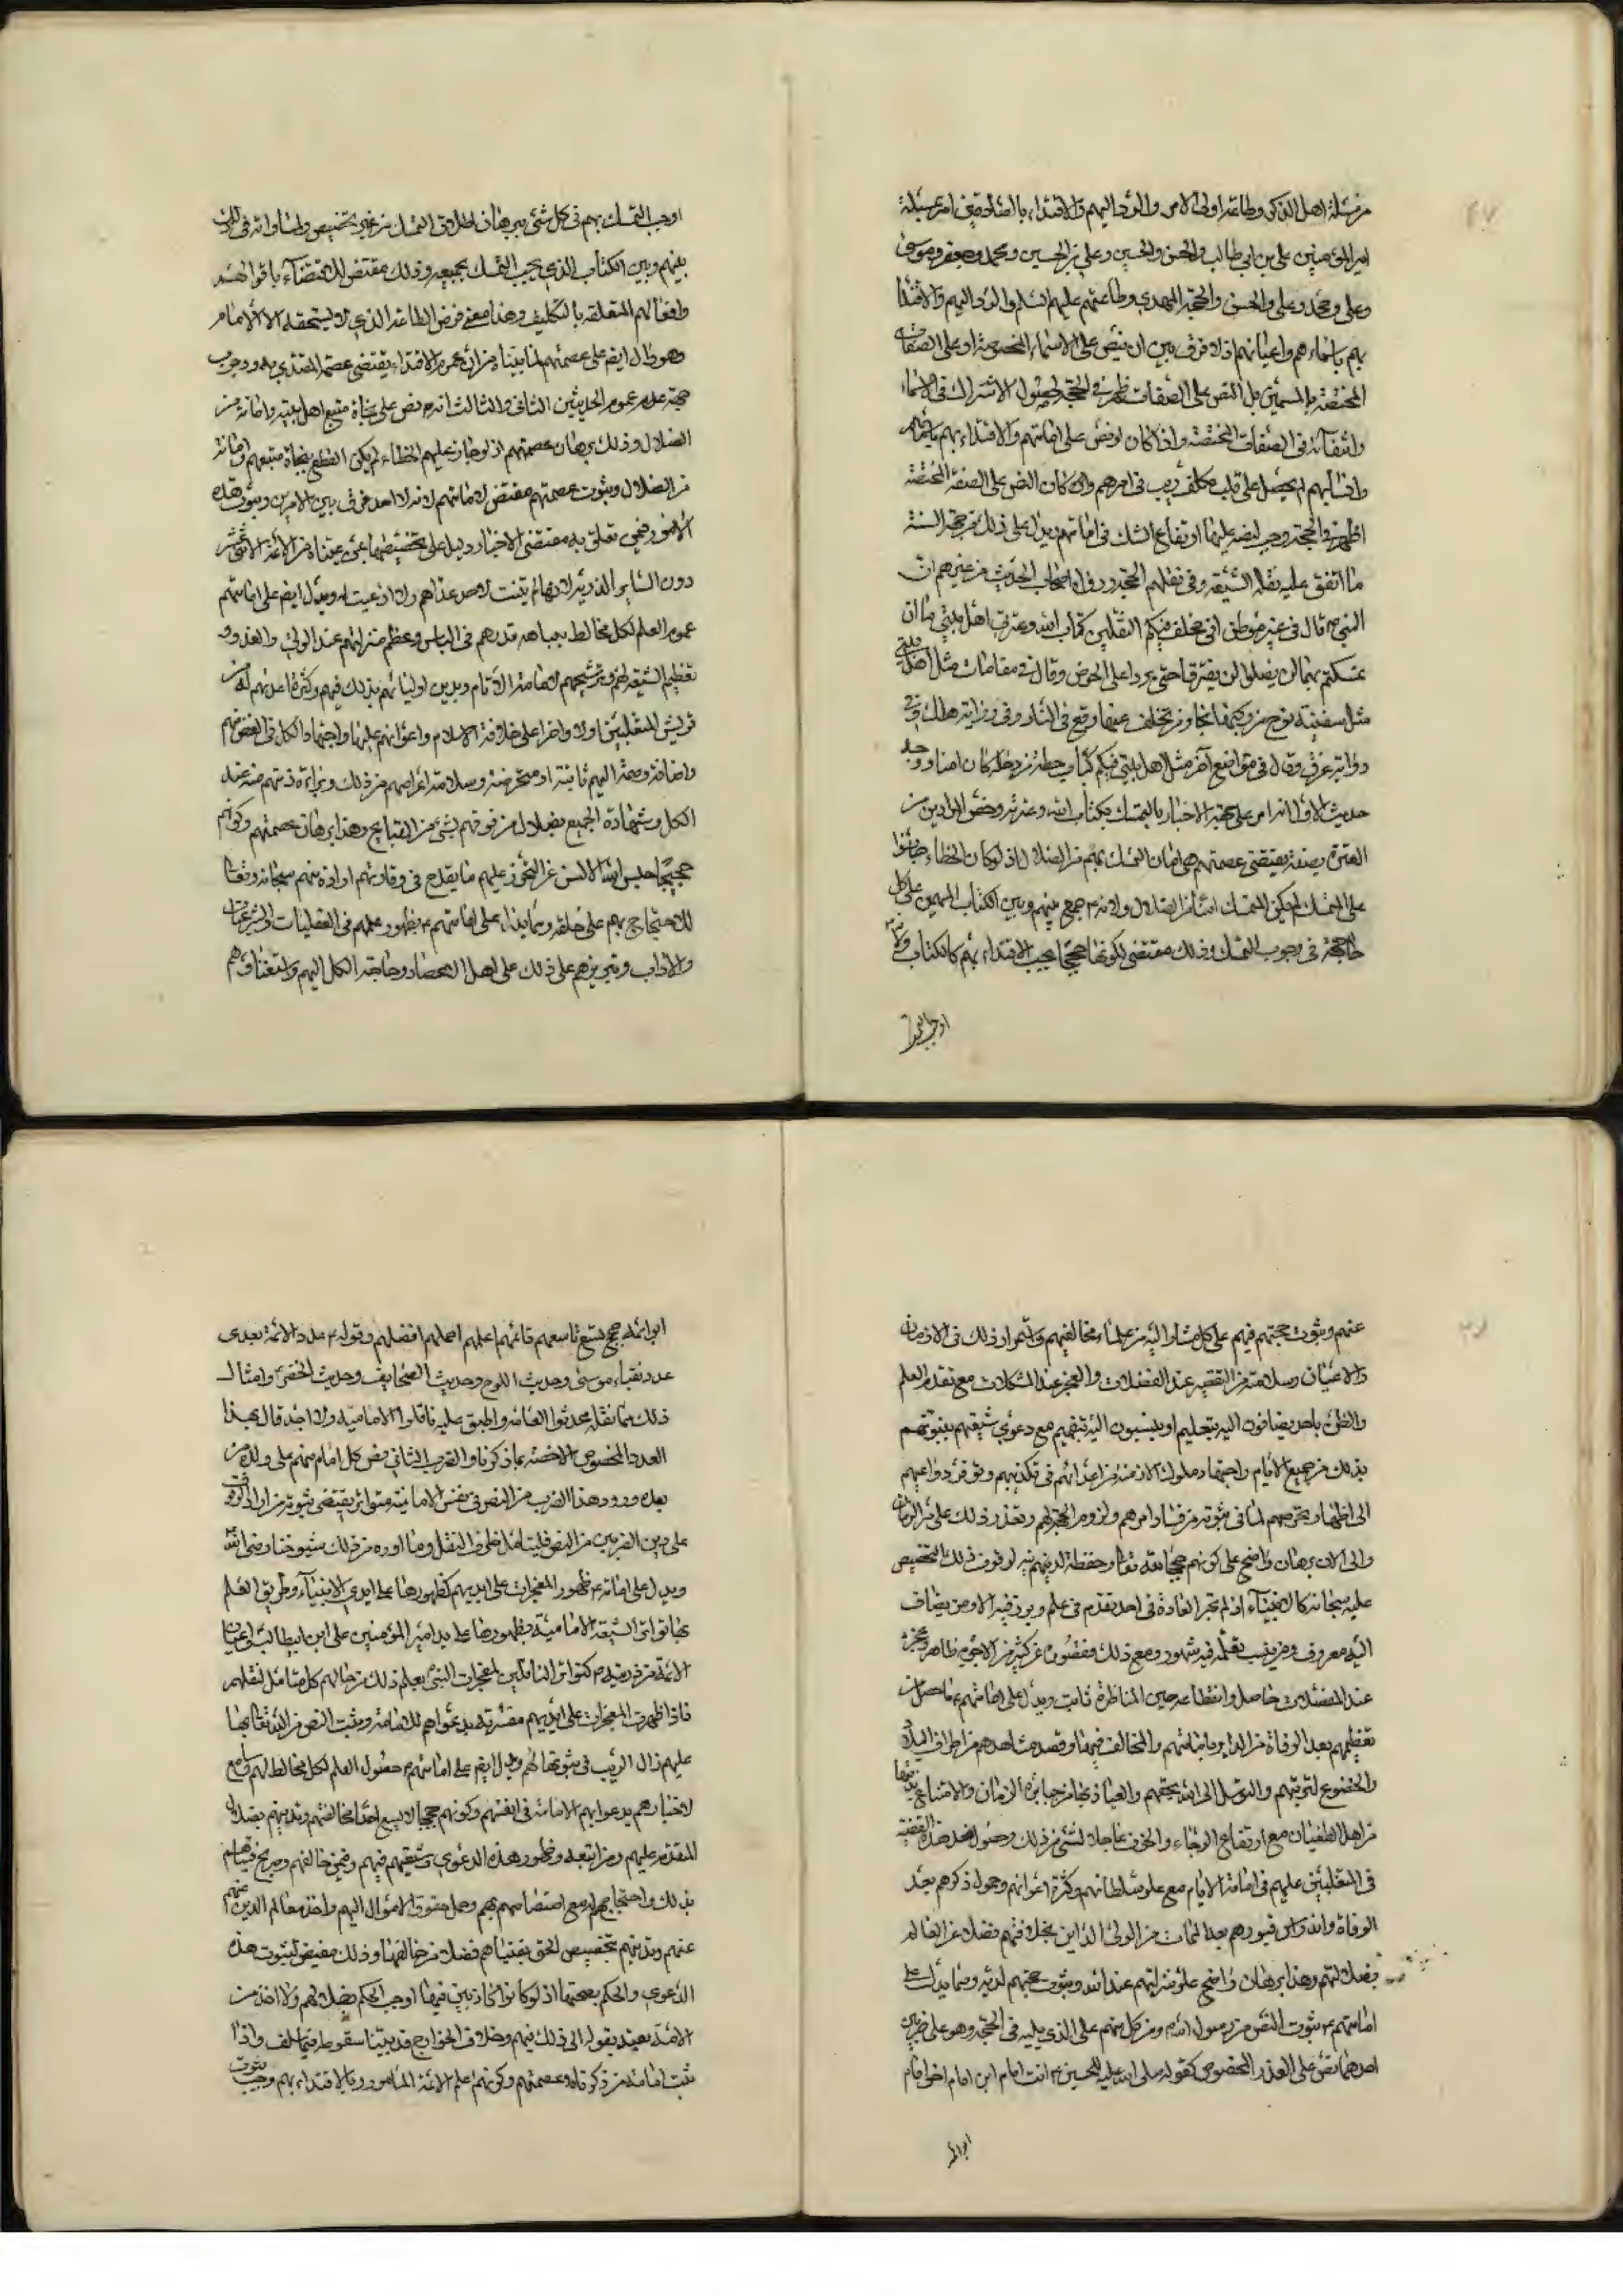 من مسئلة اهل الذكر وطاعة اولى الامر والرد اليهم والاقتداء بالصادقين امر بمسئلة
امير المؤمنين على بن ابى طالب والحسن والحسين وعلي بن الحسين ومحمد وجعفر وموسى
وعلى ومحمد وعلى والحسن والحجة المهدي وطاعتهم عليهم السلم والرد اليهم والاقتدا
بهم باسماءهم واعيانهم اذ لا فرق بين ان ينص على الاسماء المخصوصة او على الصفات
المختصة بالمسمين بل النص على الصفات اظهر فى الحجة لحصول الاشتراك فى الاسماء
وانتفائه فى الصفات المختصة واذا كان لو نص على امامتهم والاقتداء بهم باسمائهم
وانسابهم لم يحصل على قلب مكلف ريب فى امرهم وان كان النص على الصفة المختصة
اظهر فى الحجة وجب لنصه عليها ارتفاع الشك فى امامتهم ويدل على ذلك من جهة السنة
ما اتفق عليه نقلة الشيعة وفى نقلهم الحجة ورواه اصحاب الحديث من غيرهم ان
النبى ص قال فى غير موطن انى مخلف فيكم الثقلين كتاب الله وعترتى اهل بيتى ما ان
تمسكتم بهما لن تضلوا لن يفترقا حتى يردا على الحوض وقال فى مقامات مثل اهل بيتى
مثل سفينة نوح من ركبها نجا ومن تخلف عنها وقع فى النار وفى رواية هلك وفى
رواية غرق وقال فى مواضع آخر مثل اهل بيتى فيكم كباب حطة من دخله كان امنا ووجه
حديث الاول انه امر على جهة الاخبار بالتمسك بكتاب الله وعترته وخص المرادين من
العترة بصفة يقتضى عصمتهم هى امان التمسك بهم من الضلال اذ لو كان الخطاء جائزا
على التمسك لم يكن المتمسك امنا من الضلال ولانه ع جمع بينهم وبين الكتاب المهيمن على كل
حجة فى وجوب التمسك وذلك مقتضى لكونها حججا يجب الاقتداء بهم كالكتاب ولانه
اوجب التمسك
اوجب التمسك بهم فى كل شئ ببرهان اطلاق التمسك من غير تخصيص ولمساواته فى ذلك
بينهم وبين الكتاب الذى يجب التمسك بجميعه وذلك مقتض للاقتضاء باقوالهم
وافعالهم المتعلقة بالتكليف وهذا معنى فرض الطاعة الذي لا يستحقه الا الامام
وهو دال ايضا على عصمتهم لما بيناه من ان عموم الاقتداء يقتضى عصمة المقتدى به ووجوب
جهة علم عموم الحديثين الثانى والثالث انه ع نص على نجاة متبع اهل بيته وامانه من
الضلال وذلك برهان عصمتهم اذ لو جاز عليهم الخطاء لم يكن القطع بنجاة متبعهم وامانه
من الضلال وثبوت عصمتهم مقتض لامامتهم لانه لا احد فرق بين الامرين وثبوت هذه
الامور فيمن تعلق به مقتضى الاخبار دليل على تخصيصها بمن عيناه من الائمة الاثنى عشر
دون الساير الذرية لانها لم يثبت لاحد عداهم ولا ادعيت له ويدل ايضا على امامتهم
عموم العلم لكل مخالط بنباهة قدرهم فى الناس وعظم منزلتهم عند الولى والعدو و
تعظيم الشيعة لهم وترشيحهم لامامة الانام وبدين اوليائهم بذلك فيهم وكثرة اعدائهم له من
قريش المتغلبين اولا واخرا على خلافة الاسلام واعوانهم عليها واجتهاد الكل فى الغض منهم
واضافة وصمة اليهم ثابتة او متخرصة وسلامة اعراضهم من ذلك وبراءة ذمتهم منه عند
الكل وشهادة الجميع بضلال من قرفهم بشئ من القبايح وهذا برهان عصمتهم وكونهم
حججا حبس الله الالسن عن التخرص عليهم ما يقدح فى وقارتهم ارادة منهم سبحانه وتعالى
للاحتجاج بهم على خلقه ومما يدل على امامتهم ع ظهور علمهم فى العقليات والشرعيات
والاداب وتبريزهم على ذلك على اهل الاعصار وحاجة الكل اليهم واستغناؤهم
عنهم وثبوت حجتهم فيهم على كل مشار اليه من علماء مخالفيهم واستمرار ذلك فى الازمان
والاعيان وسلامته من التقصير عند المعضلات والعجز عند المشكلات مع تقدم العلم
والظن باحد يضافون اليه بتعليم او ينسبون اليه بتفهيم مع دعوي شيعتهم بتبوتهم
بذلك من جميع الانام واجتهاد ملوك الازمنة من اعدائهم فى تكذيبهم وتوفر دواعيهم
الى اظهار تخرصهم لما فى ثبوته من فساد امرهم ولزوم الحجة لهم وتعذر ذلك على مر الزمان
والى الان برهان واضح على كونهم حججا لله تعالى وحفظة لدينهم نبه لوقوف ذلك التخصيص
عليه سبحانه كالانبياء اذ لم تجر العادة فى احد تقدم فى علم وبرز فيه الا ومن يضاف
اليه معروف ومن ينسب تعلمه فيه مشهور ومع ذلك فقصوره عن كثير من الاجوبة ظاهر وعجزه
عند المعضلات حاصل وانقطاعه حين المناظرة ثابت ويدل على امامتهم ع ما حصل من
تعظيمهم بعد الوفاة من الداير بامامتهم والمخالف فيها وقصد مشاهدهم من اطراف البلاد
والخضوع لتربتهم والتوسل الى الله بحقهم والعياذ بها من جبابرة الزمان والامتناع بها
من اهل الطغيان مع ارتفاع الرجاء والخوف عاجلا لشئ من ذلك وحصول ضد هذه القضية
فى المتغلبين عليهم فى امامة الانام مع علو سلطانهم وكثرة اعوانهم وخمول ذكرهم بعد
الوفاة واندراس قبورهم بعد الممات من الولى الداين بخلافتهم فضلا عن القائل
بضلالتهم وهذا برهان واضح علو منزلتهم عند الله وثبوت حجتهم لديه ومما يدل على
امامتهم ع ثبوت النص من رسول الله ص ومن كل منهم على الذى يليه فى الحجة وهو على ضربين
احدهما نص على العدد المخصوص كقوله صلى الله عليه للحسين ع انت امام ابن امام اخو امام
ابو ائمة
ابو ائمة حجج تسع تاسعهم قائمهم اعلمهم احكمهم افضلهم وقوله ع عدد الائمة بعدى
عدد نقباء موسى وحديث اللوح وحديث الصحايف وحديث الخضر وامثال
ذلك مما نقله محدثوا العامة واطبق عليه ناقلوا الامامية ولا احد قال بهذا
العدد المخصوص الا خصه بما ذكرناه والضرب الثانى نص كل امام منهم على ولده من
بعده وورود هذا الضرب من النص فى نفس الامامية متواتر يقتضى ثبوته من اراد الوقوف
على دين الضربين من النص فليتامل طرق النقل وما اورده من ذلك شيوخنا رضى الله
ويدل على امامته ع ظهور المعجزات على ايديهم كظهورها على ايدي الانبياء وطريق العلم
بها تواتر الشيعة الامامية بظهورها على يد امير المؤمنين على ابن ابيطالب واعيان
الائمة من ذريته ع كتواتر الناقلين لمعجزات النبى يعلم ذلك من حالهم كل متامل لنقلهم
فاذا ظهرت المعجزات على ايديهم مقترنة بدعواهم للامامة وثبت النص من الله تعالى بها
عليهم زال الريب فى ثبوتها لهم ويدل ايضا على امامتهم ع حصول العلم لكل مخالط لهم وسامع
لاخبارهم بدعوايهم الامامة فى انفسهم وكونهم حججا لا يسع احدا مخالفتهم وتدينهم بضلال
المتقدم عليهم ومن اتبعه وظهور هذه الدعوي وشيعتهم فيهم وفيمن خالفهم وصريح فتياهم
بذلك واحتجاجهم له مع اختصاصهم بهم وحمل حقوق الاموال اليهم واخذ معالم الدين عنهم
عنهم وتدينهم بتخصيص الحق بفتياهم فضلا من خالفها وذلك مقتض لثبوت هذه
الدعوى والحكم بصحتها اذ لو كانوا كاذبين فيها اوجب الحكم بضلالهم ولا احد من
الامة يعتد بقوله الى ذلك فيهم وخلاف الخوارج قد بينا سقوطه فيما سلف واذا
ثبت امامة من ذكرناه وعصمتهم وكونهم اعلم الائمة المامور بالاقتداء بهم وجب ثبوت